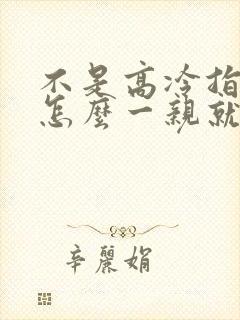 不是高冷指
怎麼一親就
辛麗娟